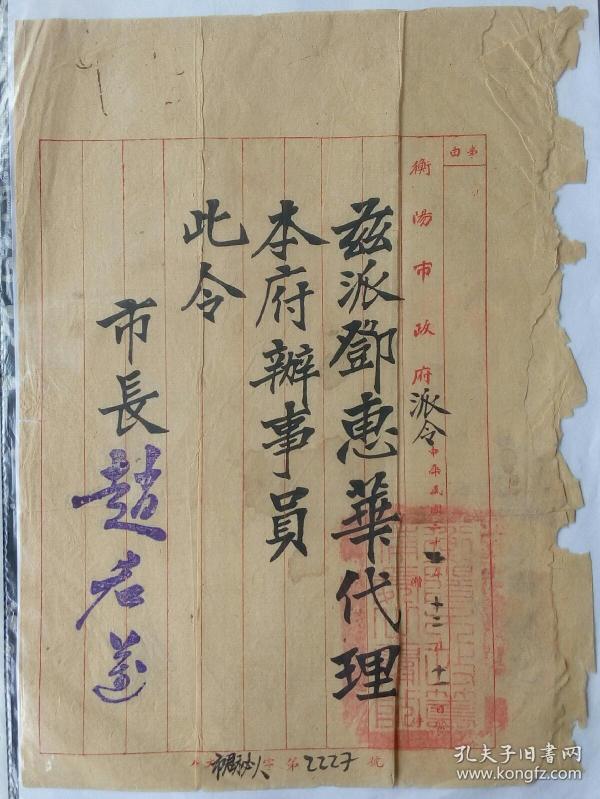 事由
衡陽市政府派令
中華民國三十二年十二月十一日發
茲派鄧惠華代理
本府辦事員
此令
市長趙君邁
字第2227號
孔夫子旧书网
www.kongfz.com